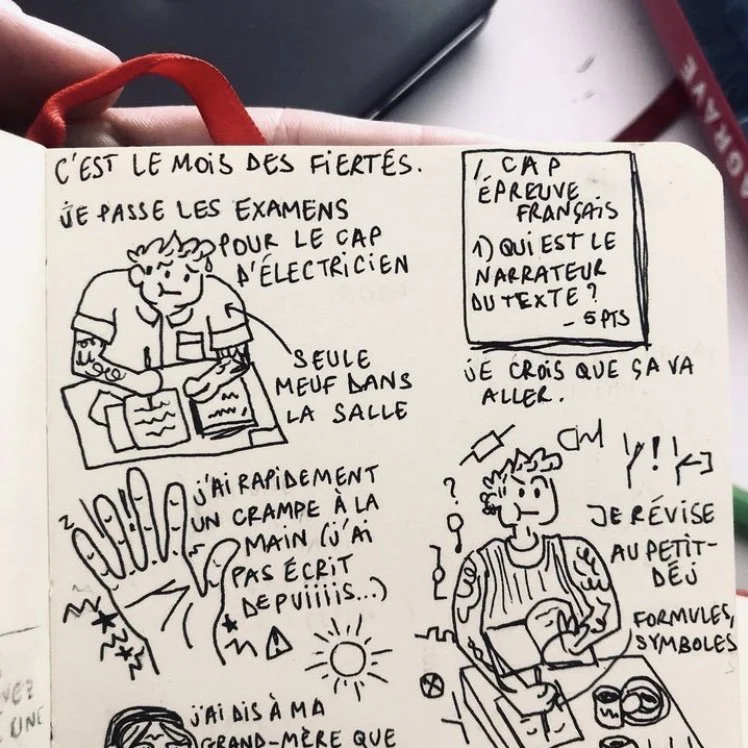 C'EST LE MOIS DES FIERTÉS.
JE PASSE LES EXAMENS
POUR LE CAP
D'ÉLECTRICIEN
SEULE
MEUF DANS
LA SALLE
J'AI RAPIDEMENT
UN CRAMPE À LA
MAIN (J'AI
PAS ÉCRIT
DEPUIIIIS...)
J'AI DIS À MA
GRAND-MÈRE QUE
/. CAP
ÉPREUVE
FRANÇAIS
1) QUI EST LE
NARRATEUR
DU TEXTE?
- 5 PTS
JE CROIS QUE ÇA VA
ALLER.
JE RÉVISE
AU PETIT-
DÉJ
FORMULES,
SYMBOLES
UNE
AGRAVE